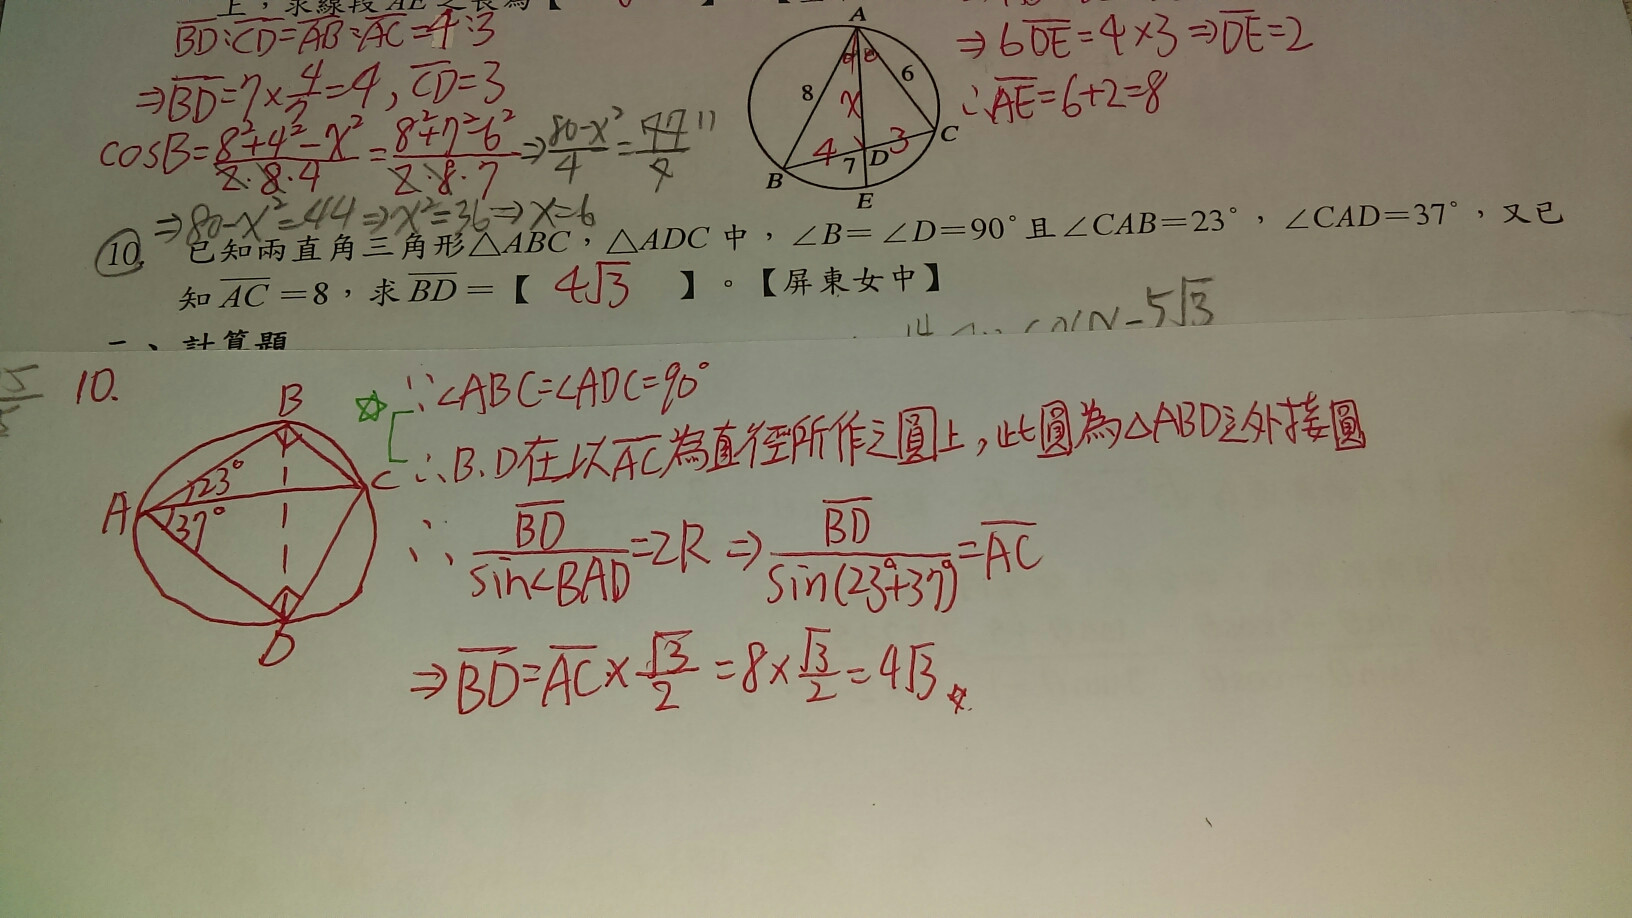 上，求線段 AE 之長為【
BD:CD=AB:AC=4:3
⇒BD=7×4/7=4, CD=3
cosB=(8²+4²-x²)/(2·8·4)=(8²+7²-6²)/(2·8·7)⇒(80-x²)/4=77/7 11
⇒80-x²=44⇒x²=36⇒x=6
A
8
6
x
4
7
D
3
B
C
E
⇒6DE=4×3⇒DE=2
∴AE=6+2=8
10. 已知兩直角三角形△ABC，△ADC 中，∠B=∠D=90°且∠CAB=23°，∠CAD=37°，又已
知 AC=8，求 BD=【 4√3 】。【屏東女中】
二、計算題
5√3
10.
B
A
23°
37°
C
D
∵∠ABC=∠ADC=90°
∴B.D在以AC為直徑所作之圓上，此圓為△ABD之外接圓
∴BD/sin∠BAD=2R⇒BD/sin(23°+37°)=AC
⇒BD=AC×√3/2=8×√3/2=4√3